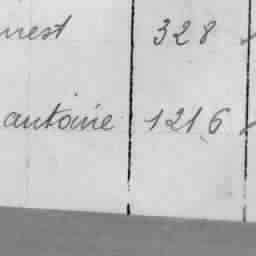 nest 328
antoine 1216